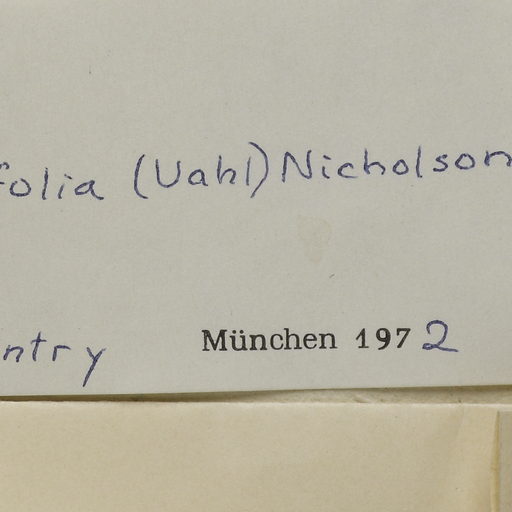 folia (Vahl) Nicholson
ntry München 1972